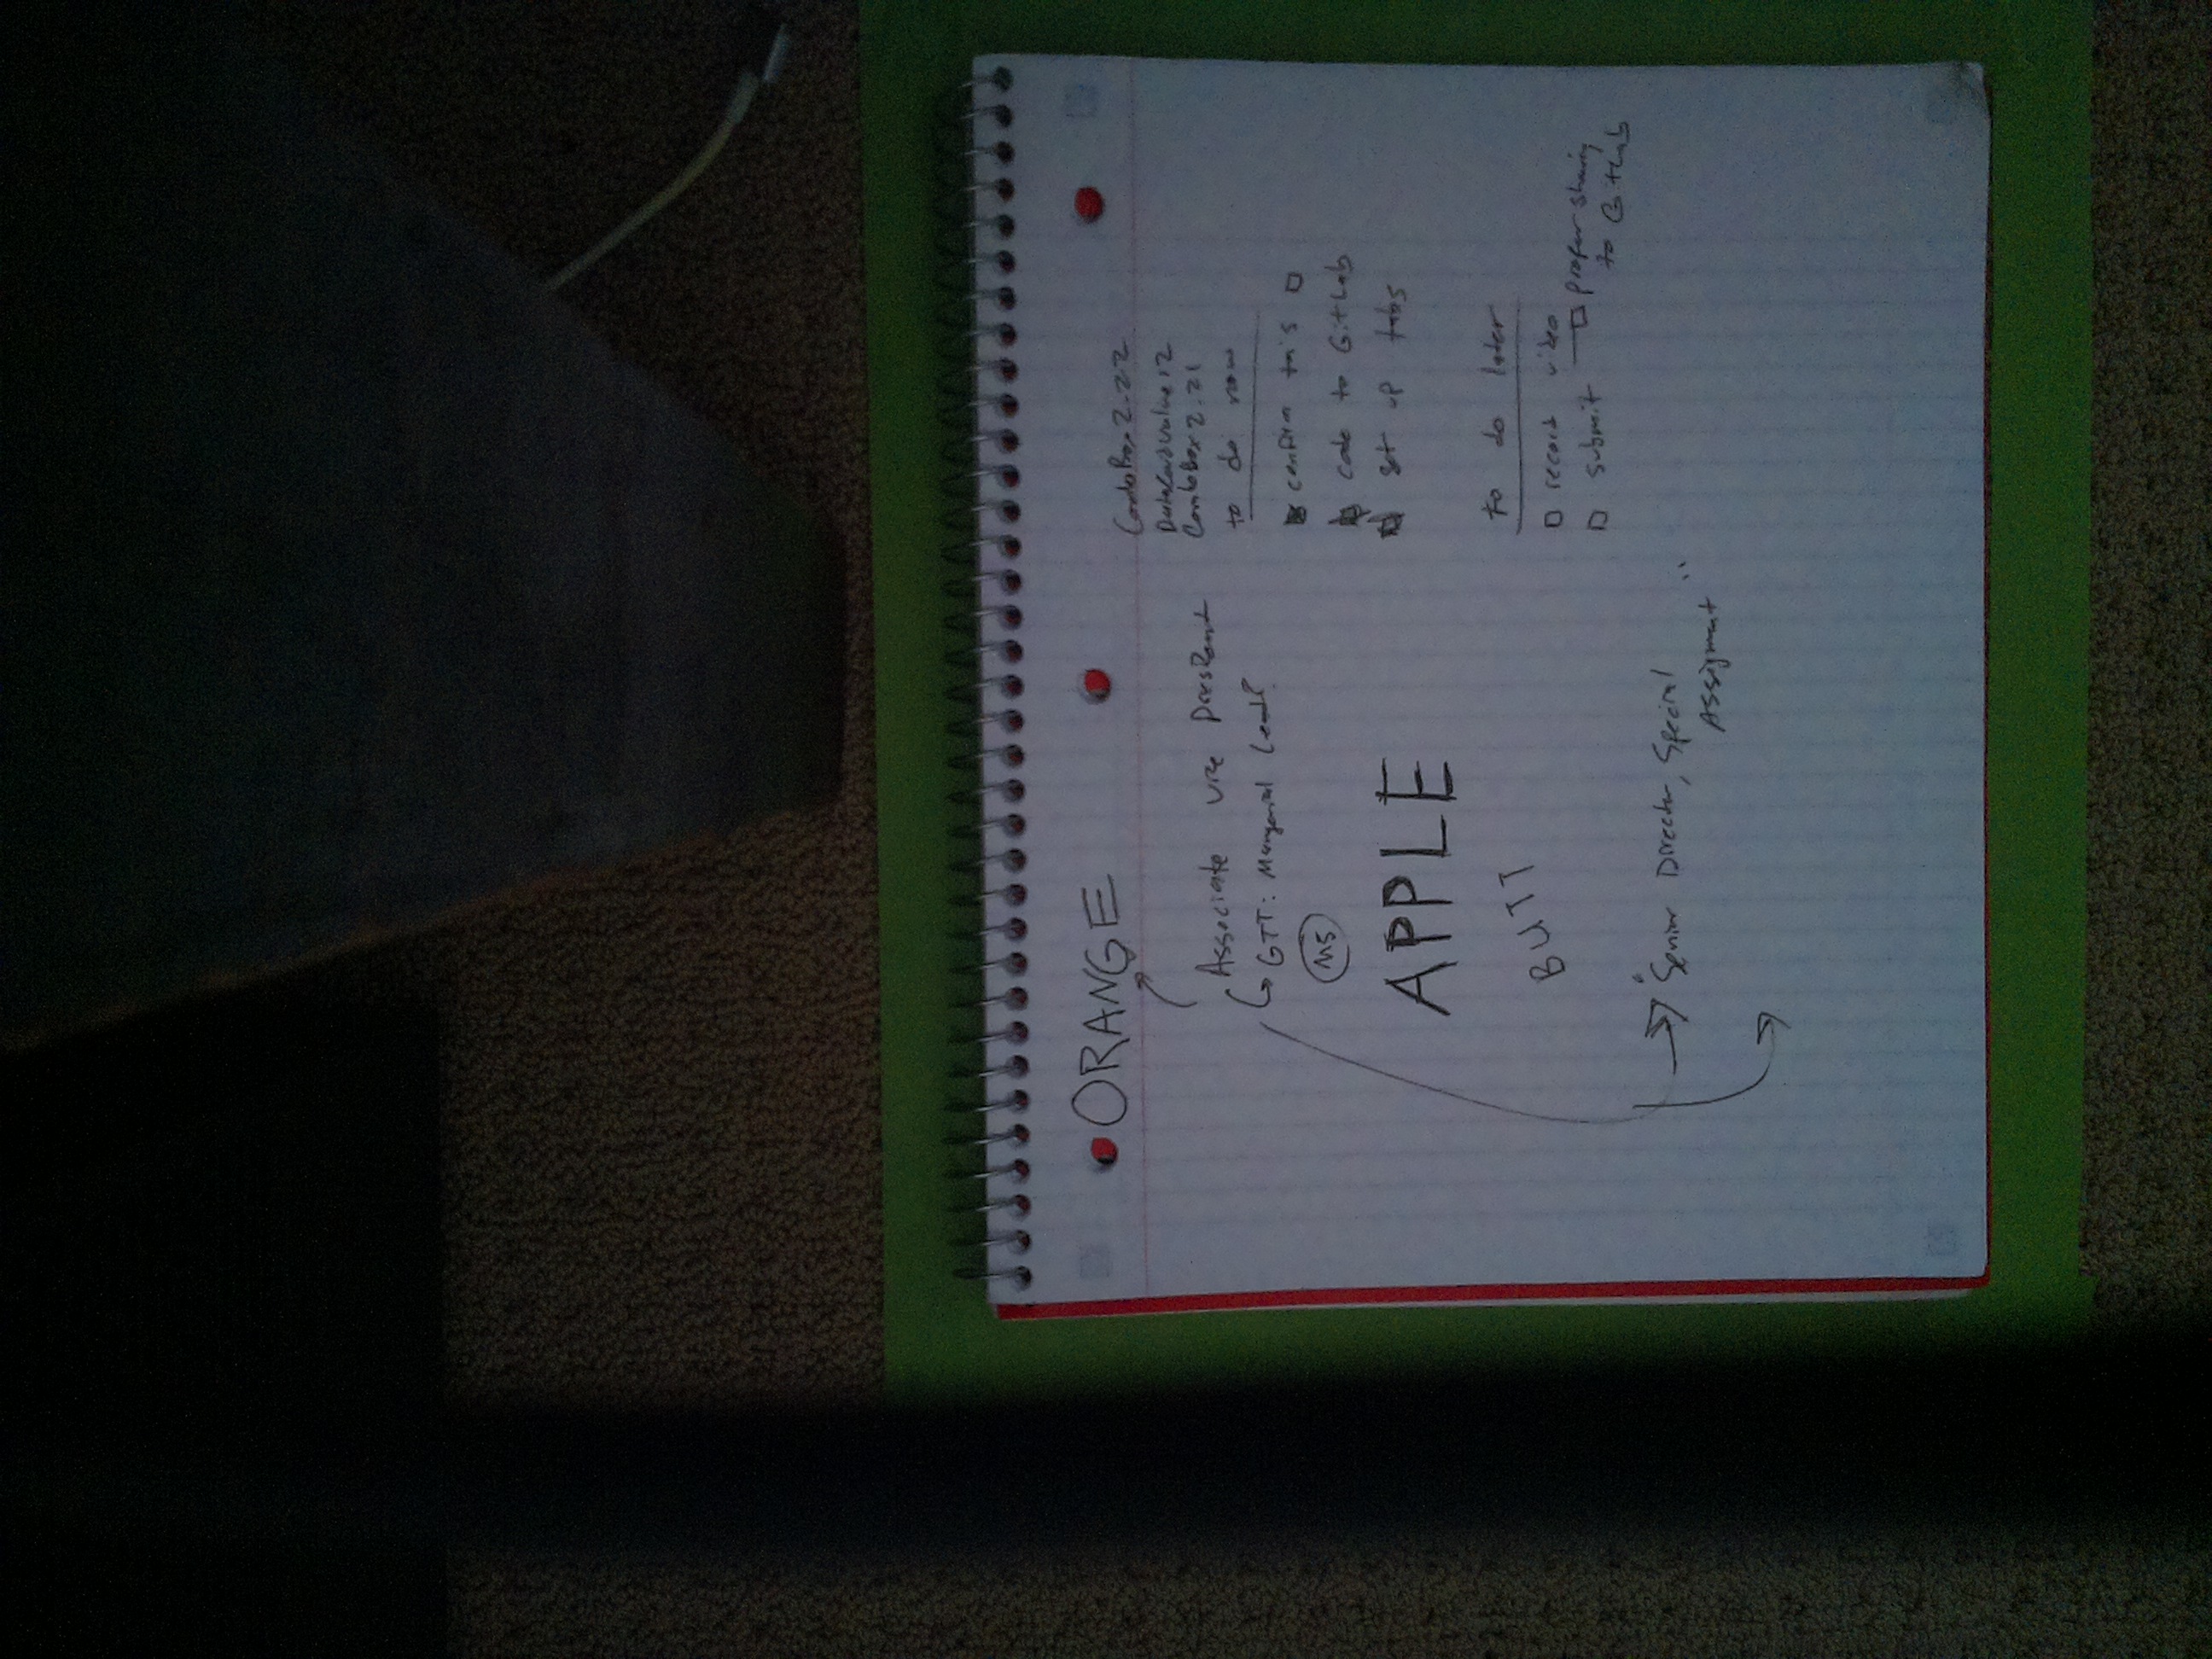 ORANGE
Associate Vice President
GTT: Managerial Lead?
MS
APPLE
BUTT
"Senior Director, Special
Assignment"
ComboBox2.22
DataCardValue12
ComboBox2.21
to do now
confirm this
code to GitLab
set up tabs
to do later
record video
submit
prefer sharing
to GitLab